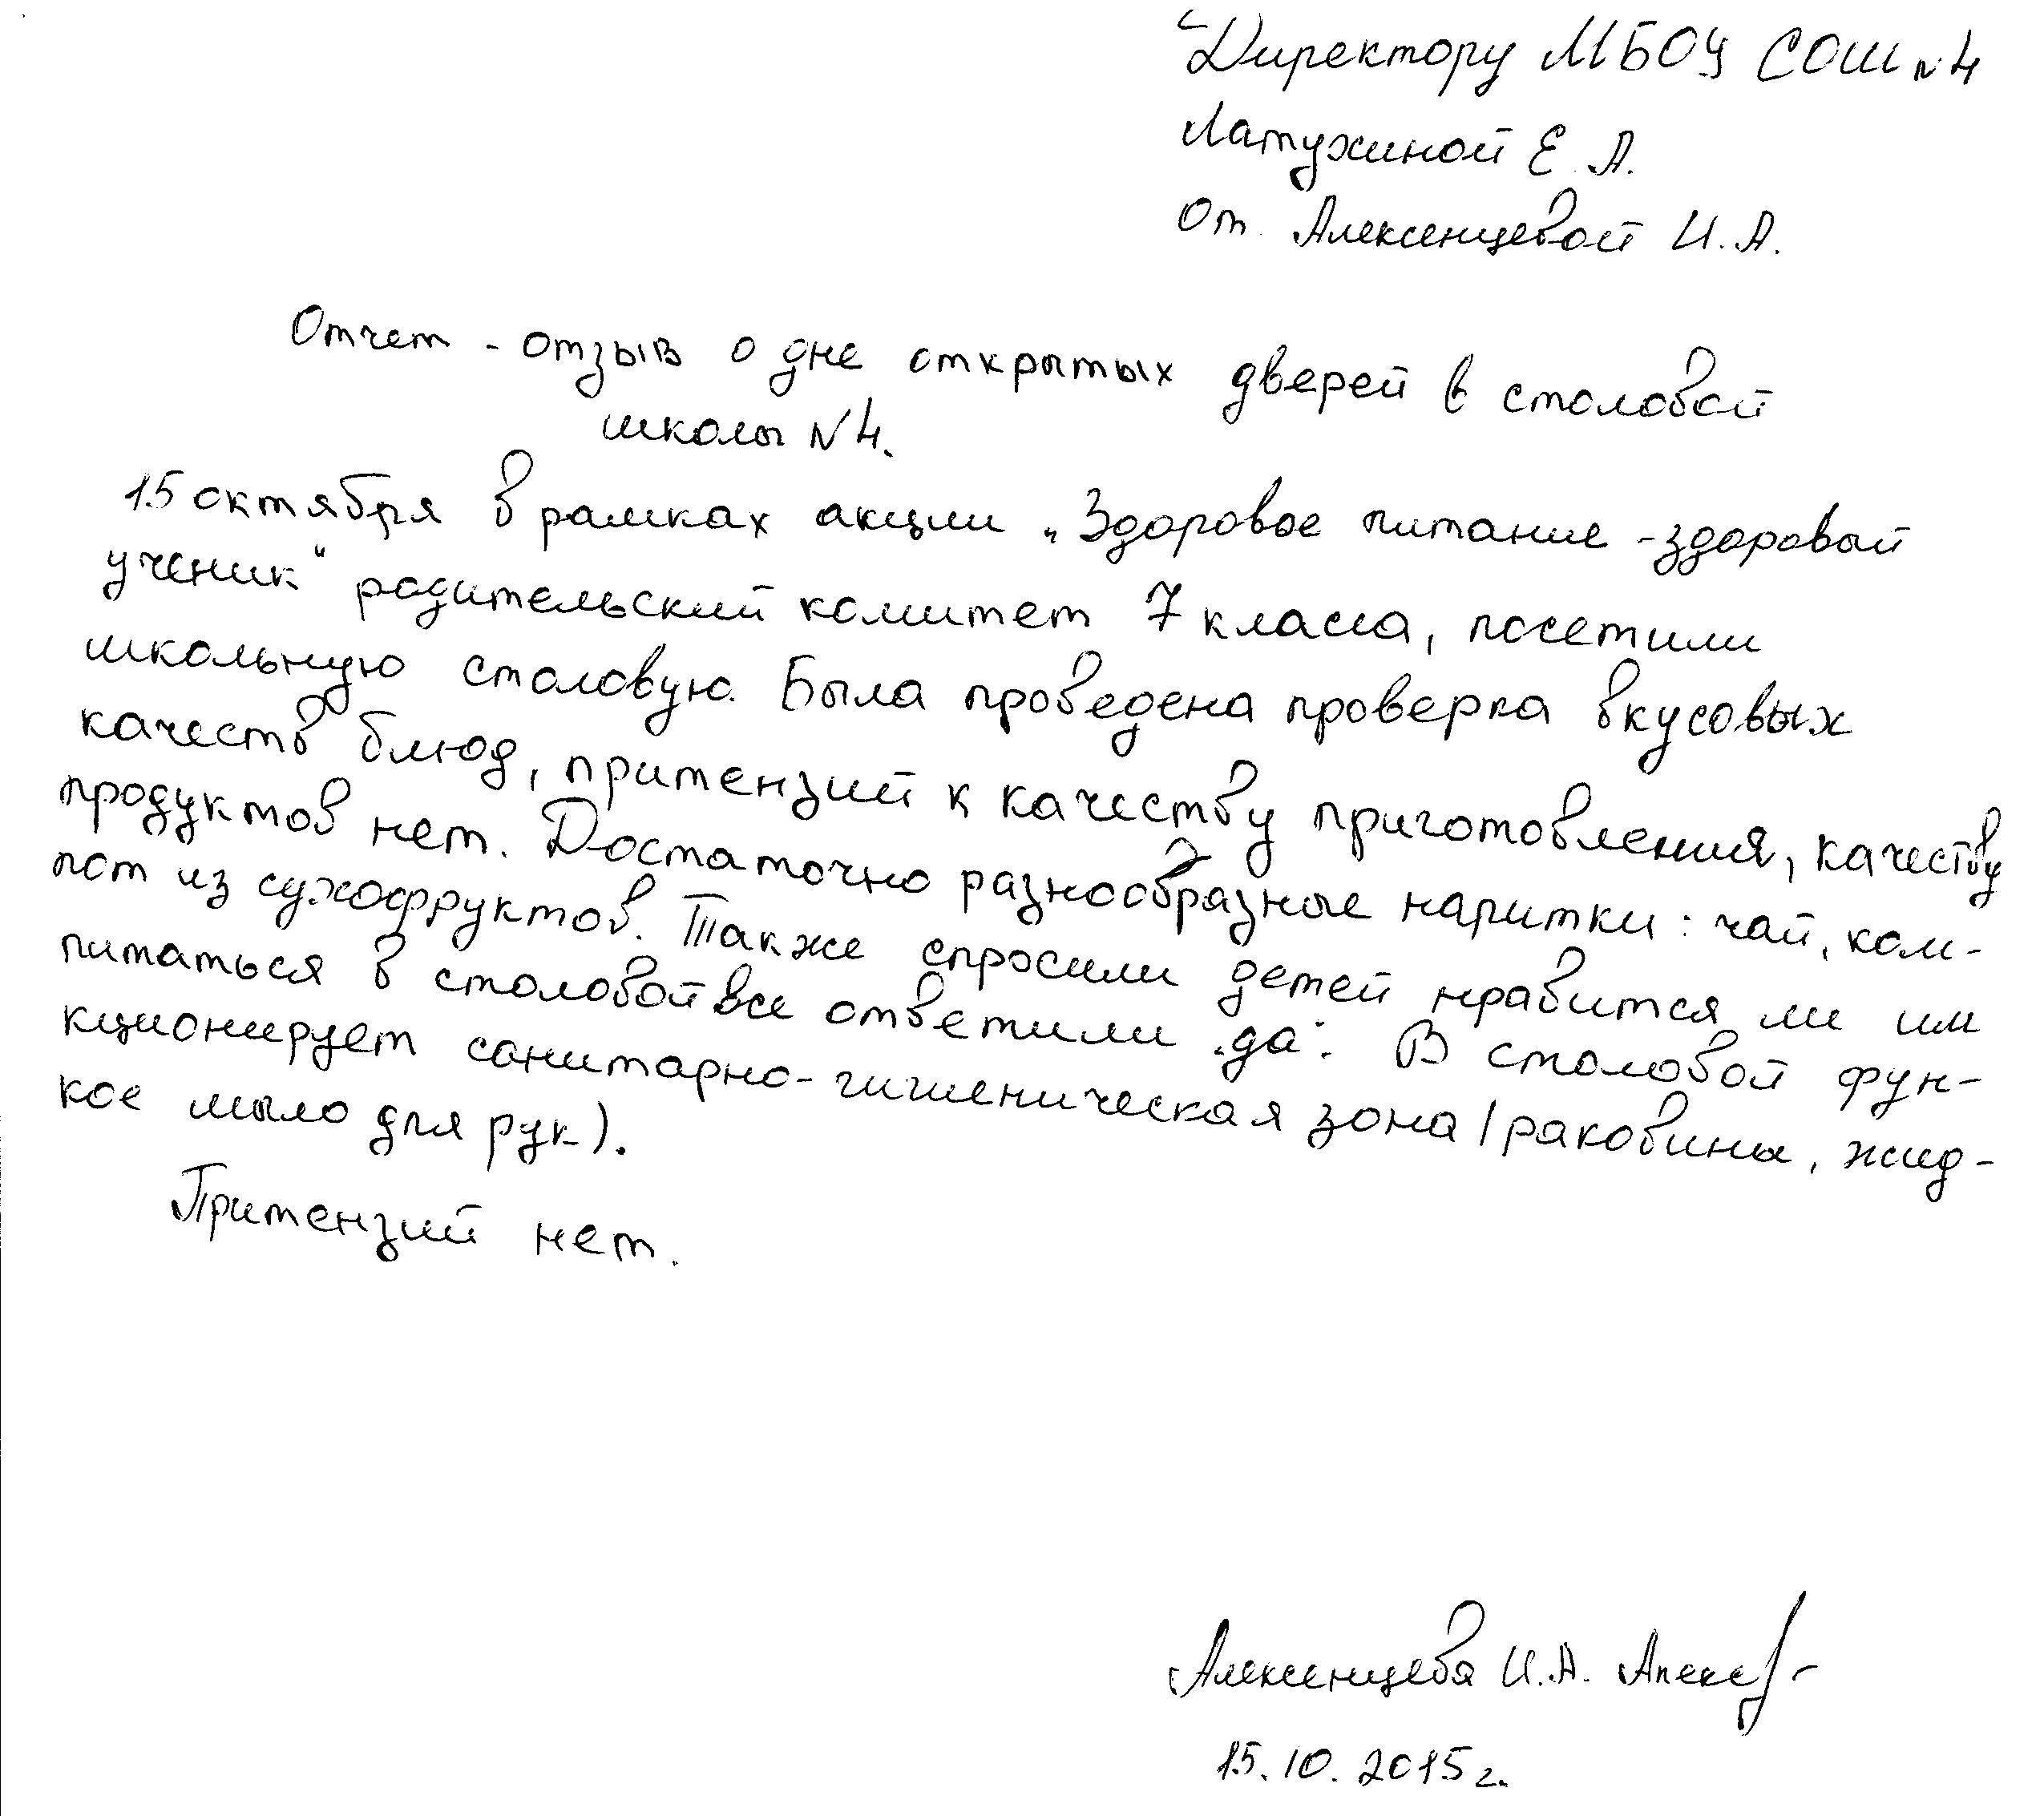 Директору МБОУ СОШ №4
Латухиной Е. А.
От Алексенцевой И. А.
Отчет - отзыв о дне открытых дверей в столовой
школы №4.
15 октября в рамках акции „Здоровое питание - здоровый
ученик“ родительский комитет 7 класса, посетили
школьную столовую. Была проведена проверка вкусовых
качеств блюд, притензий к качеству приготовления, качеству
продуктов нет. Достаточно разнообразные напитки: чай, ком-
пот из сухофруктов. Также спросили детей нравится ли им
питаться в столовой все ответили „да“. В столовой фун-
кционирует санитарно-гигиеническая зона (раковины, жид-
кое мыло для рук).
Притензий нет.
Алексенцева И.А. Алекс
15.10.2015 г.